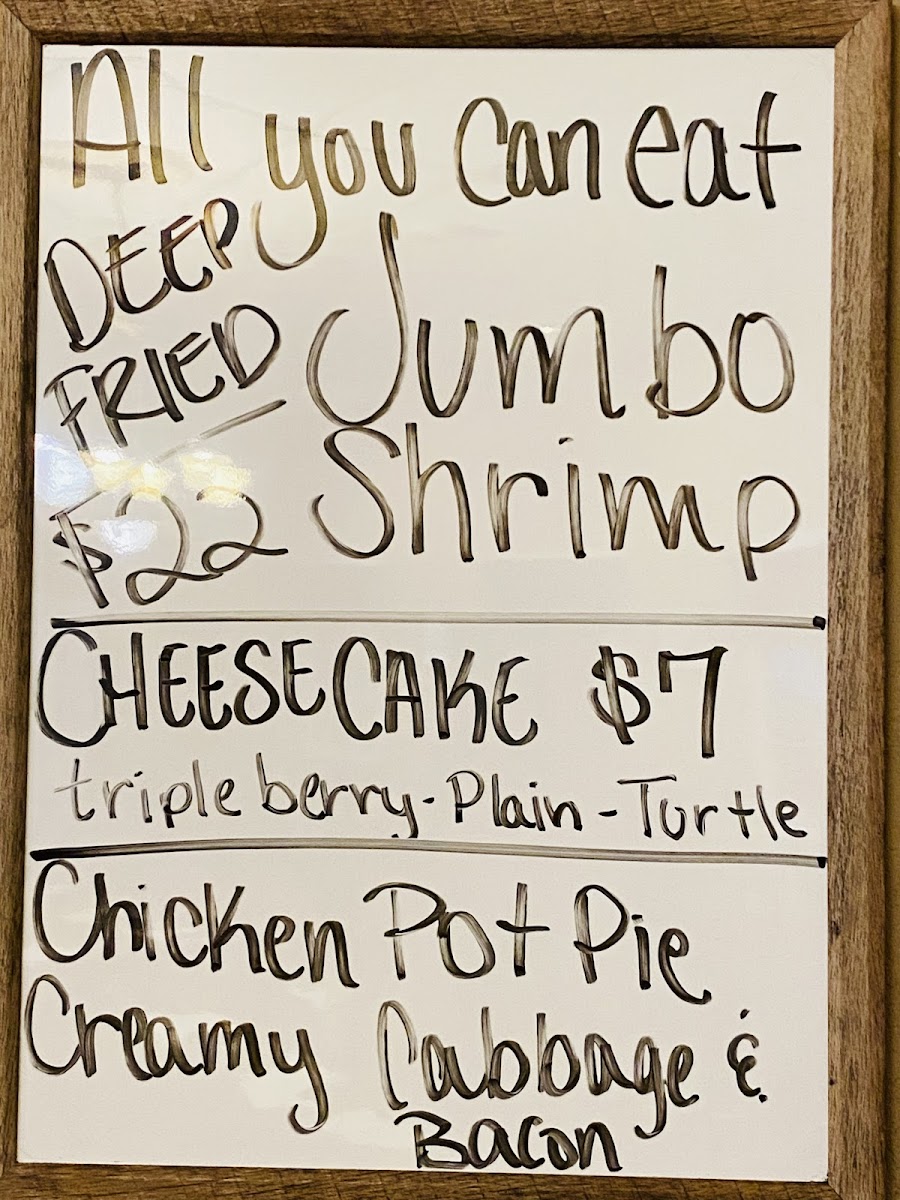 All you can eat
DEEP
FRIED
Jumbo
Shrimp
$22
CHEESECAKE $7
triple berry - Plain - Turtle
Chicken Pot Pie
Creamy Cabbage &
Bacon